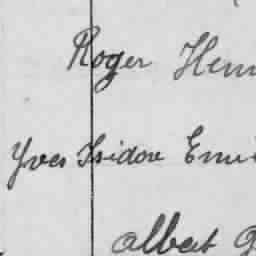 Roger Hen
Yves Isidore Emi
Albert